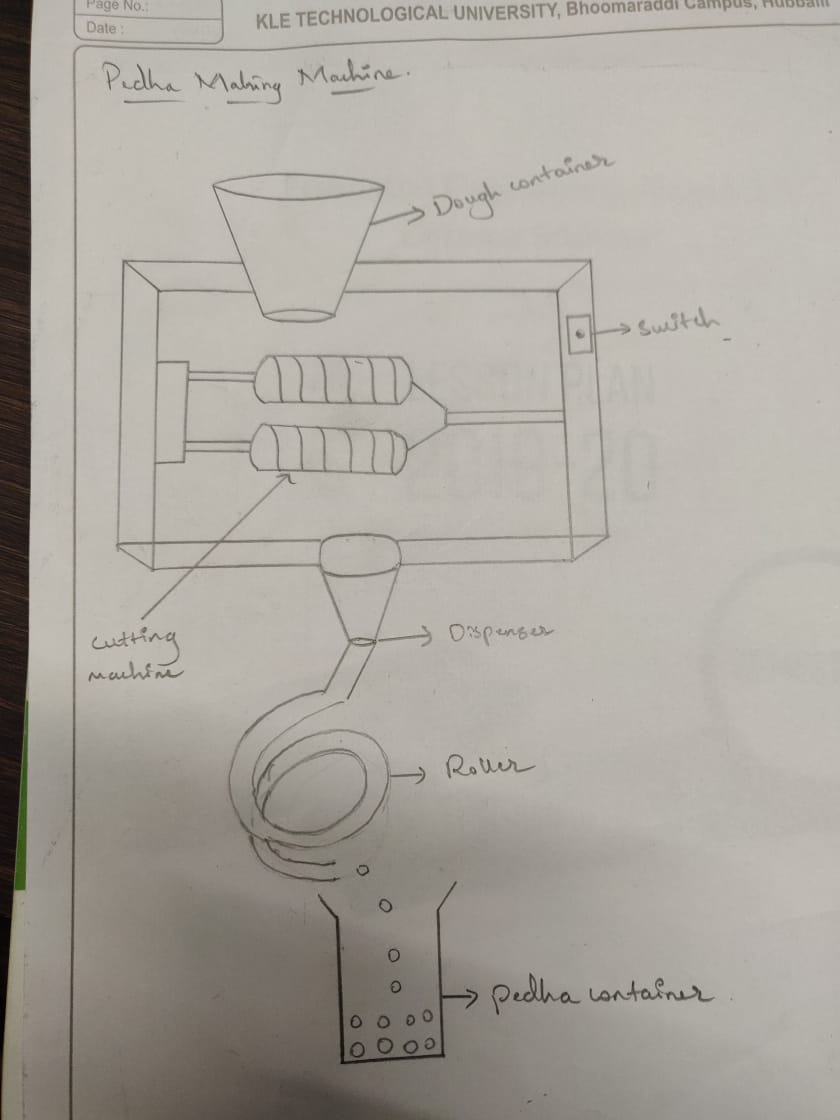 Page No.:
Date :
KLE TECHNOLOGICAL UNIVERSITY, Bhoomaraddi Campus, Hubballi
Pedha Making Machine.
Dough container
Switch
cutting
machine
Dispenser
Roller
pedha container